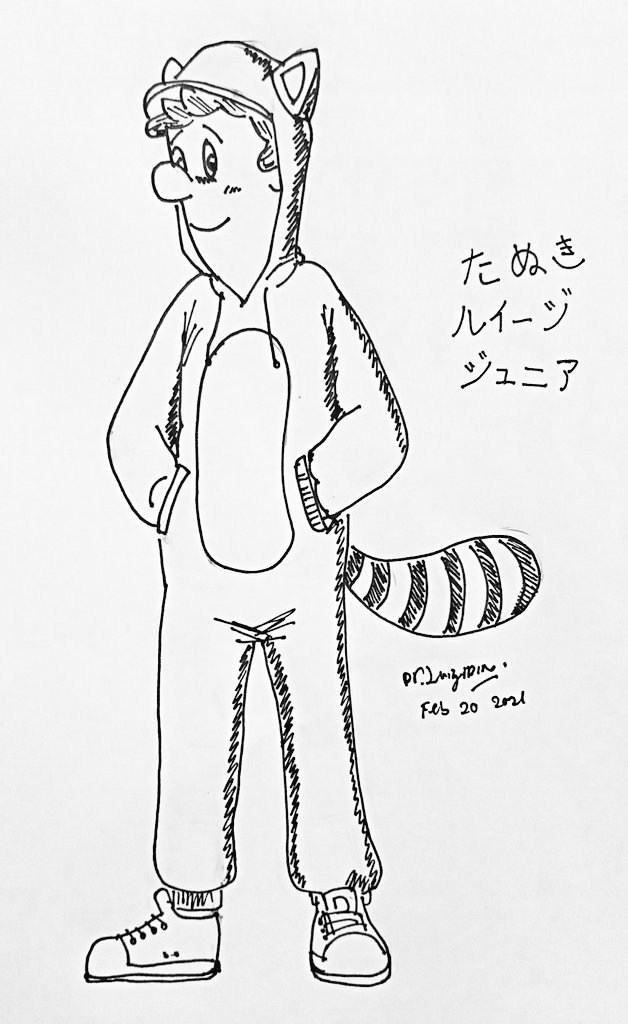 たぬき
ルイージ
ジュニア
Feb 20 2021